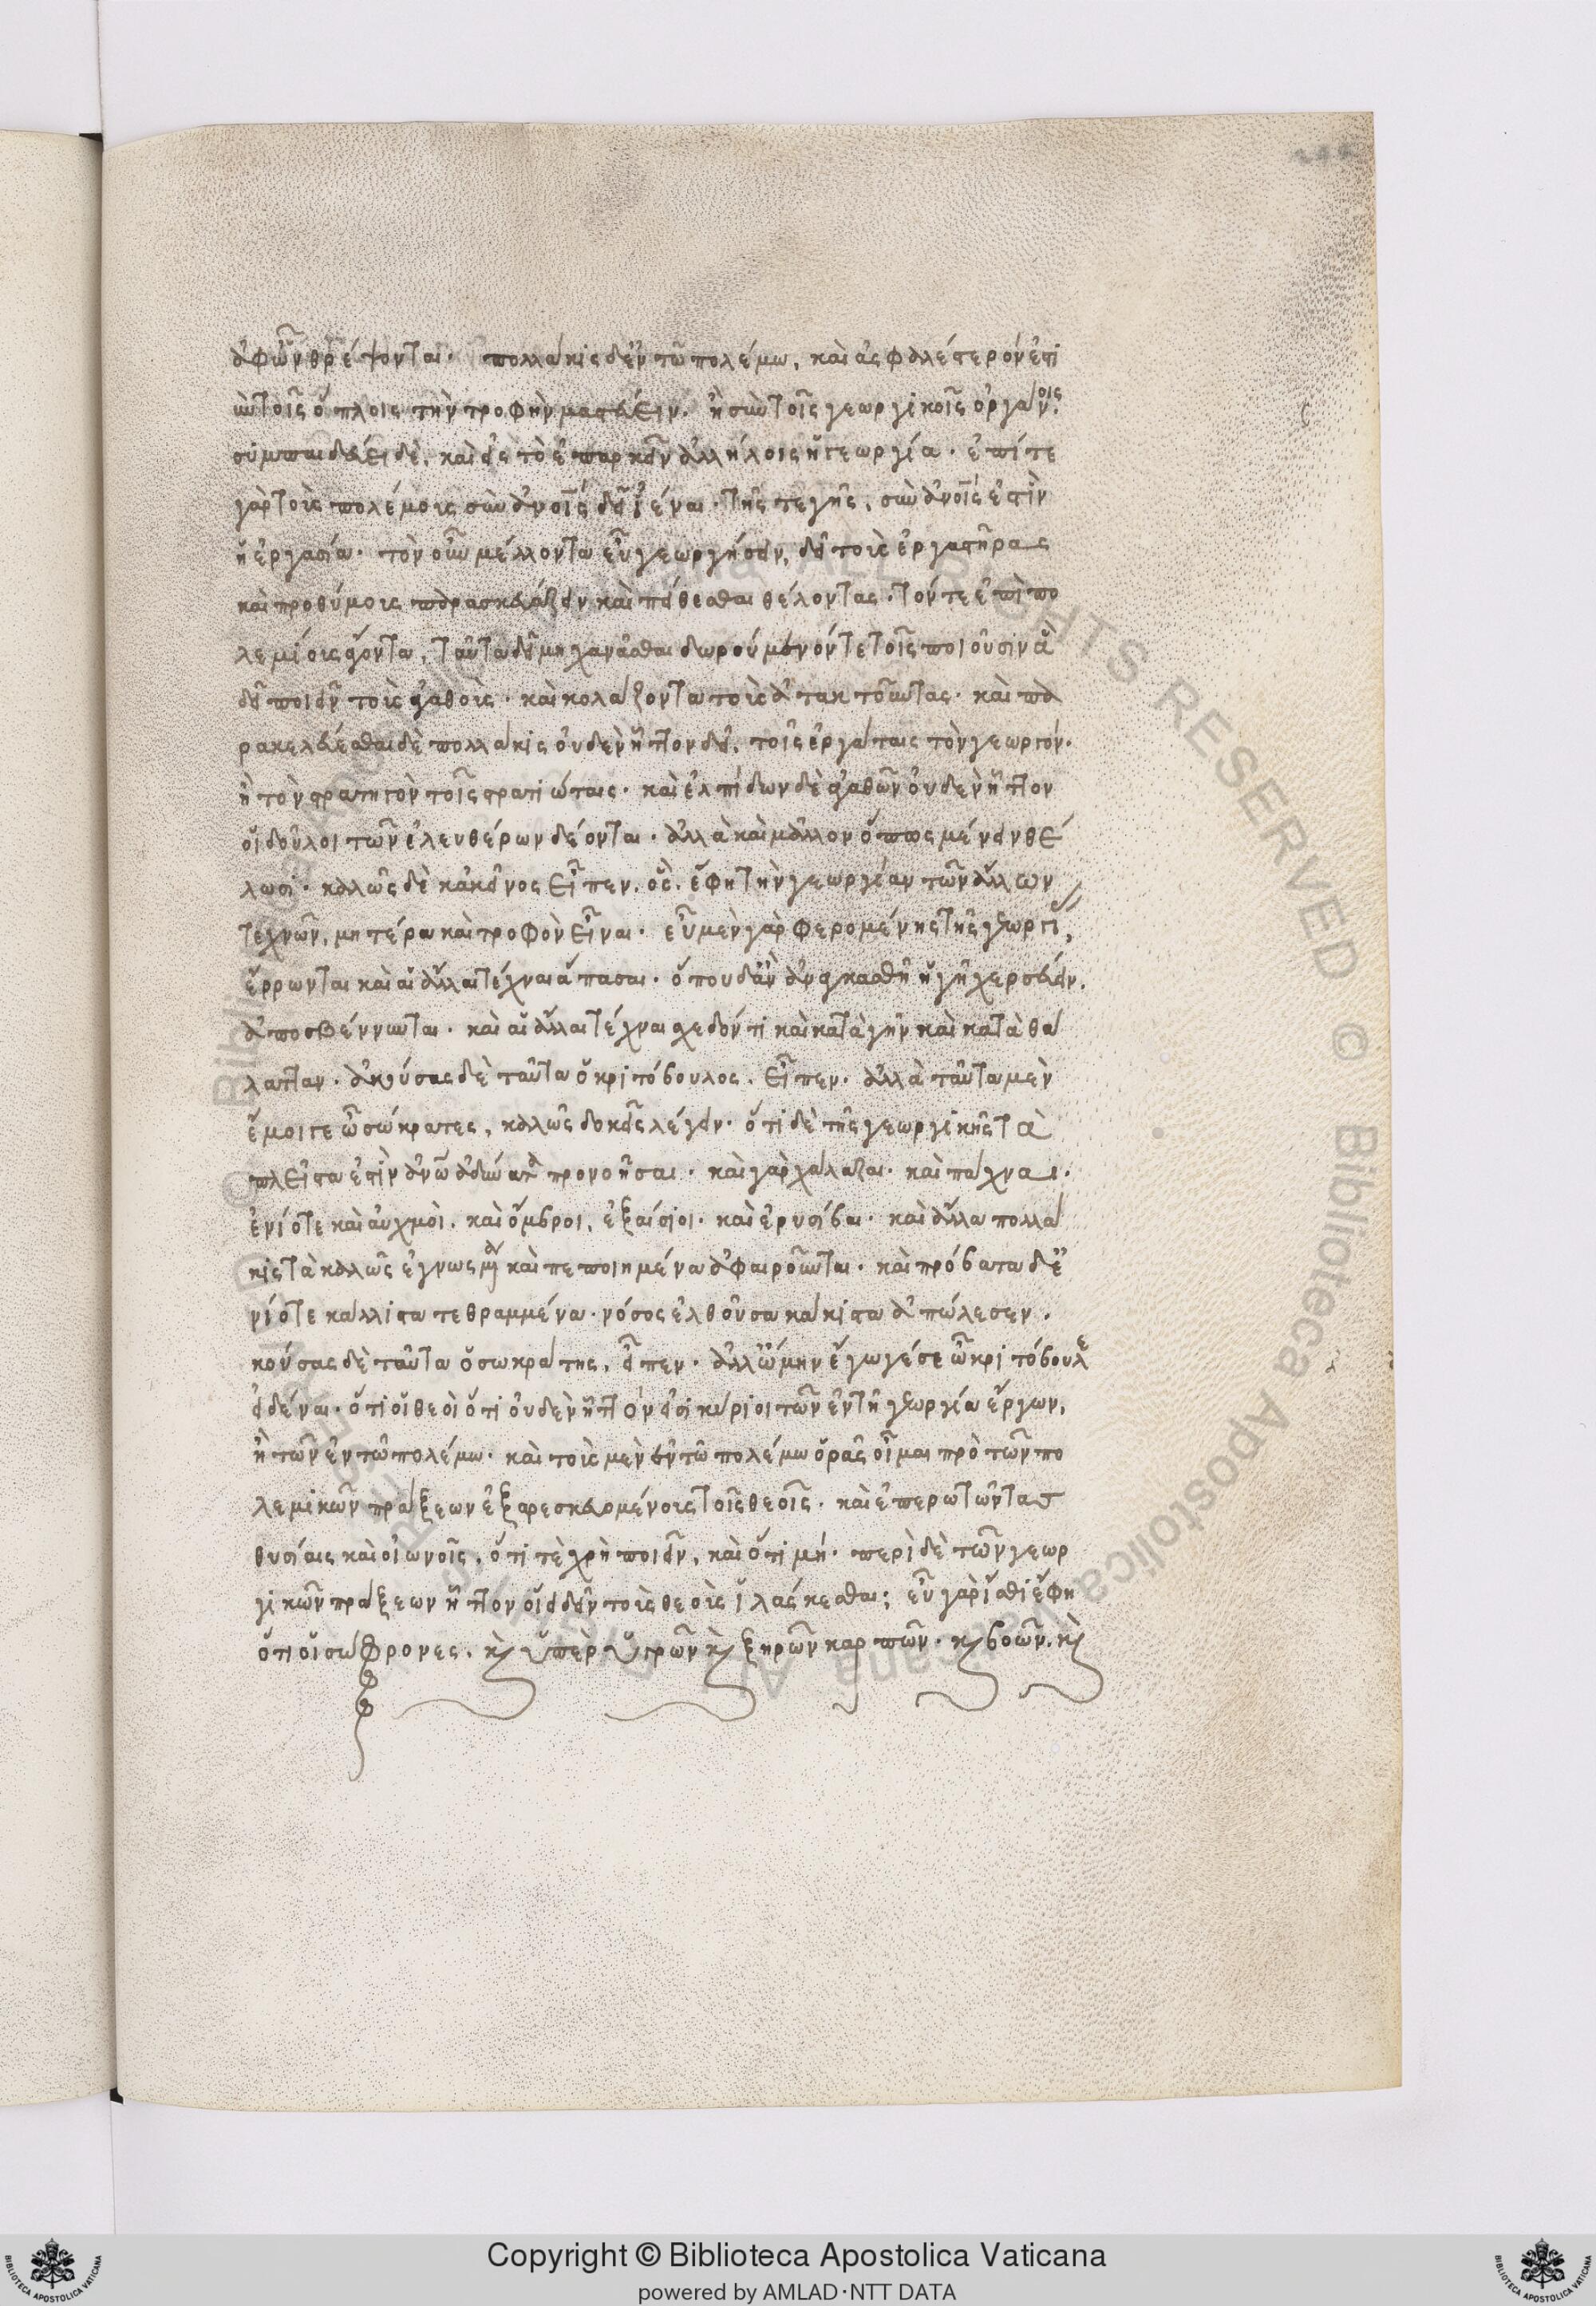 ἀφ' ὧν θρέψονται. πολλάκις δ' ἐν τῷ πολέμω, καὶ ἀσφαλέστερόν ἐστι
σὺν τοῖς ὅπλοις τὴν τροφὴν μαστεύειν. ἢ σὺν τοῖς γεωργικοῖς ὀργάνοις.
συμπαιδεύει δὲ, καὶ εἰς τὸ ἐπαρκεῖν ἀλλήλοις ἡ γεωργία. ἐπί τε
γὰρ τοὺς πολέμους σὺν ἀνοις δεῖ ἰέναι. τῆς τε γῆς, σὺν ἀνοις ἐστὶν
ἡ ἐργασία. τὸν οὖν μέλλοντα εὖ γεωργήσειν, δεῖ τοὺς ἐργαστῆρας
καὶ προθύμους παρασκευάζειν καὶ πείθεσθαι θέλοντας. τόν τε ἐπὶ πο
λεμίους ἄγοντα, ταῦτα δεῖ μηχανᾶσθαι δωρούμενόν τε τοῖς ποιοῦσιν ἃ
δεῖ ποιεῖν τοὺς ἀγαθοὺς. καὶ κολάζοντα τοὺς ἀτακτοῦντας. καὶ πα
ρακελεύεσθαι δὲ πολλάκις οὐδὲν ἧττον δεῖ, τοῖς ἐργάταις τὸν γεωργόν.
ἢ τὸν στρατηγὸν τοῖς στρατιώταις. καὶ ἐλπίδων δὲ ἀγαθῶν οὐδὲν ἧττον
οἱ δοῦλοι τῶν ἐλευθέρων δέονται. ἀλλὰ καὶ μᾶλλον ὅπως μένειν ἐθέ
λωσι. καλῶς δὲ κἀκεῖνος εἶπεν. ὃς. ἔφη τὴν γεωργίαν τῶν ἄλλων
τεχνῶν, μητέρα καὶ τροφὸν εἶναι. εὖ μὲν γὰρ φερομένης τῆς γεωργί,
ἔρρωνται καὶ αἱ ἄλλαι τέχναι ἅπασαι. ὅπου δ' ἂν ἀναγκασθῆ ἡ γῆ χερσεύειν.
ἀποσβέννυνται. καὶ αἱ ἄλλαι τέχναι σχεδόν τι καὶ κατὰ γῆν καὶ κατὰ θά
λατταν. ἀκούσας δὲ ταῦτα ὁ κριτόβουλος. εἶπεν. ἀλλὰ ταῦτα μὲν
ἔμοιγε ὦ σώκρατες, καλῶς δοκεῖς λέγειν. ὅτι δὲ τῆς γεωργικῆς τὰ
πλεῖστα ἐστὶν ἀνω ἀδύνατα προνοῆσαι. καὶ γὰρ χάλαζαι. καὶ πάχναι.
ἐνίοτε καὶ αὐχμοὶ. καὶ ὄμβροι, ἐξαίσιοι. καὶ ἐρυσίβαι. καὶ ἄλλα πολλά
κις τὰ καλῶς ἐγνωσμένα καὶ πεποιημένα ἀφαιροῦνται. καὶ πρόβατα δ' ἐ
νίοτε κάλλιστα τεθραμμένα. νόσος ἐλθοῦσα κάκιστα ἀπώλεσεν.
κούσας δὲ ταῦτα ὁ σωκράτης, εἶπεν. ἀλλ' ὤμην ἔγωγέ σε ὦ κριτόβουλε
εἰδέναι. ὅτι οἱ θεοὶ ὅτι οὐδὲν ἧττόν εἰσι κύριοι τῶν ἐν τῆ γεωργία ἔργων,
ἢ τῶν ἐν τῶ πολέμω. καὶ τοὺς μὲν ἐν τῶ πολέμω ὁρᾶς οἶμαι πρὸ τῶν πο
λεμικῶν πράξεων ἐξαρεσκευομένους τοῖς θεοῖς. καὶ ἐπερωτῶντας
θυσίαις καὶ οἰωνοῖς, ὅτι τὲ χρὴ ποιεῖν, καὶ ὅτι μή. περὶ δὲ τῶν γεωρ
γικῶν πράξεων ἧττον οἴει δεῖν τοὺς θεοὺς ἱλάσκεσθαι; εὖ γὰρ ἴσθι ἔφη
ὅτι οἱ σώφρονες. κὶ ὑπὲρ ὑγρῶν κὶ ξηρῶν καρπῶν. κὶ βοῶν. κὶ
Copyright © Biblioteca Apostolica Vaticana
powered by AMLAD·NTT DATA